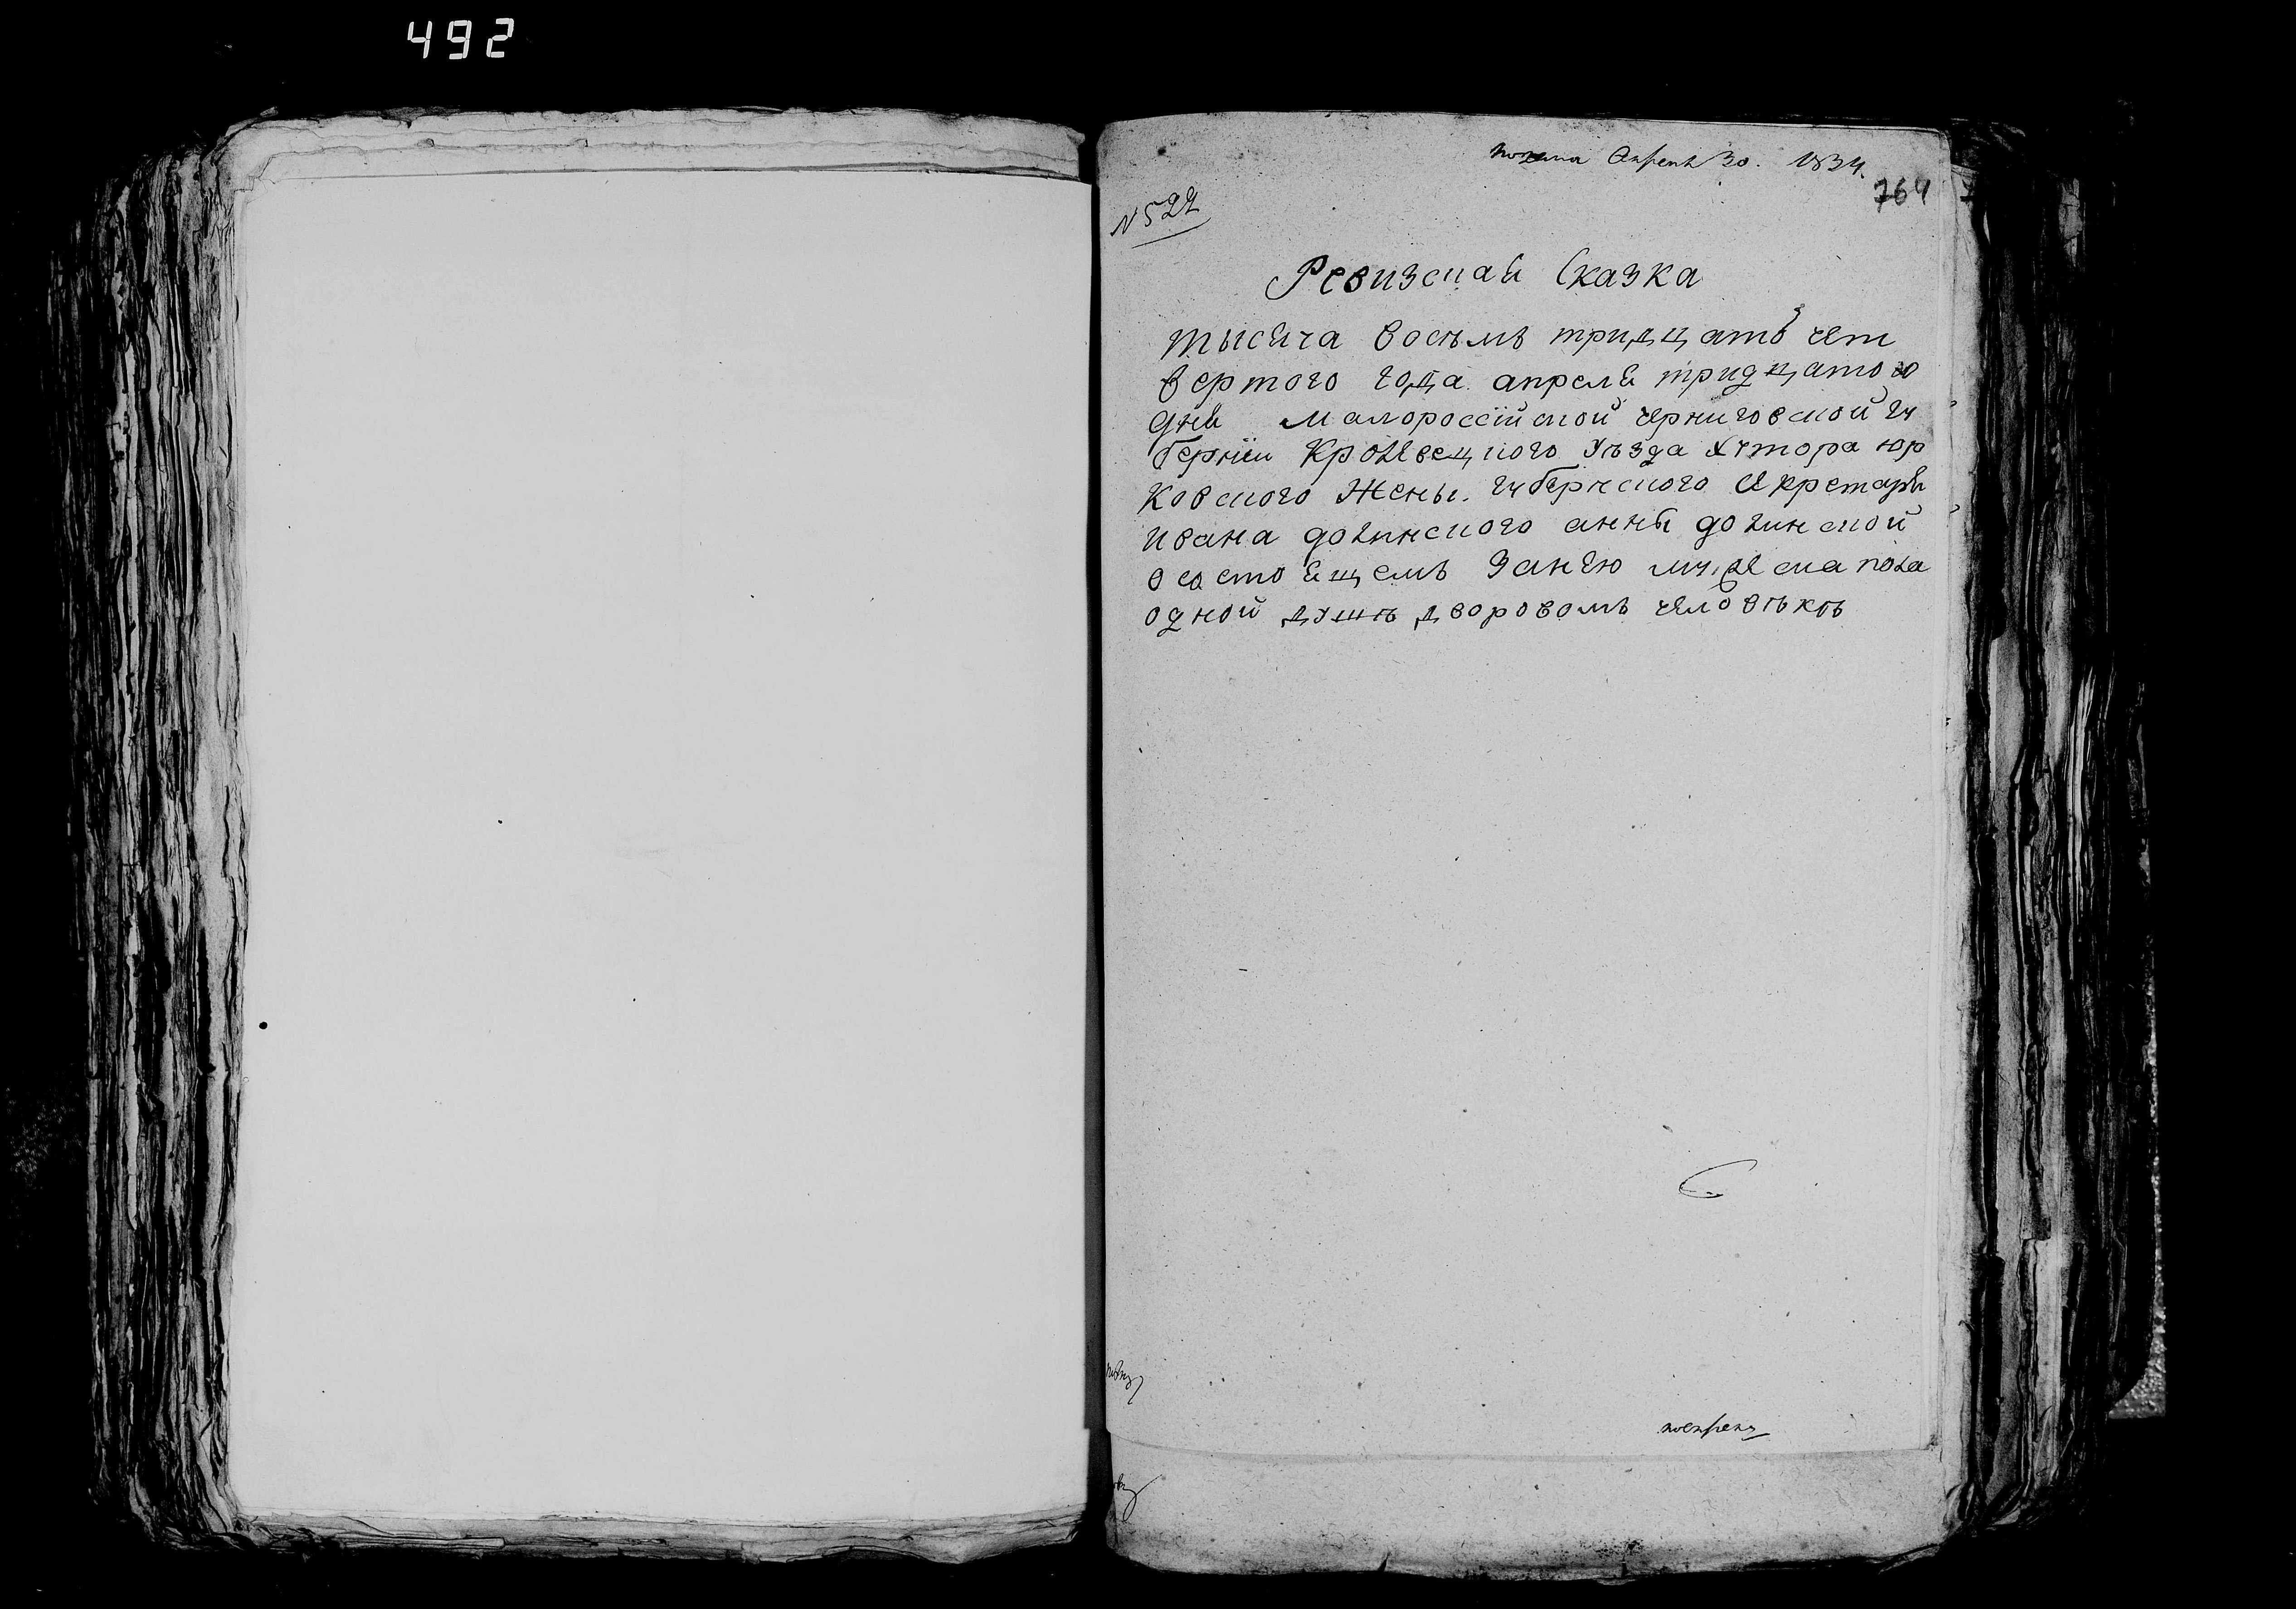 492
Апреля 30. 1834.
764
N 522
Ревизская Сказка
тысяча восемь тридцать чет
вертого года апреля тридцатого
дня Малороссійской черниговской гу
берніи Кролевецкого уѣзда хутора юр
ковского Жены губернского секретаря
ивана долинского анны долинской
о состоящемъ Занею мужеска пола
одной душѣ дворовомъ человѣкѣ